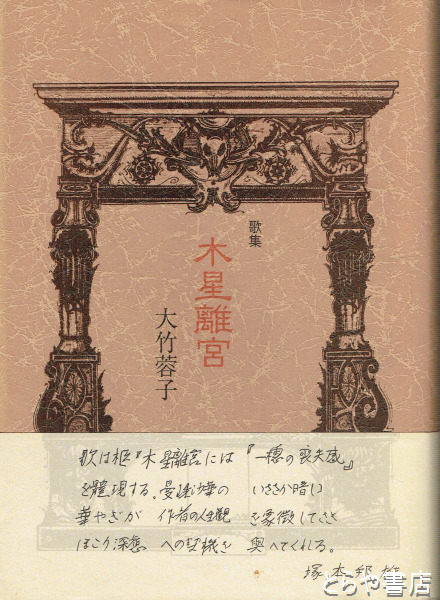 歌集
木星離宮
大竹蓉子
歌は柩『木星離宮には『一穂の喪失感』
を體現する。いささか暗い
華やぎが 作者の人生観を象徴して
への契機を 與へてくれる。
塚本邦雄
とらや書店